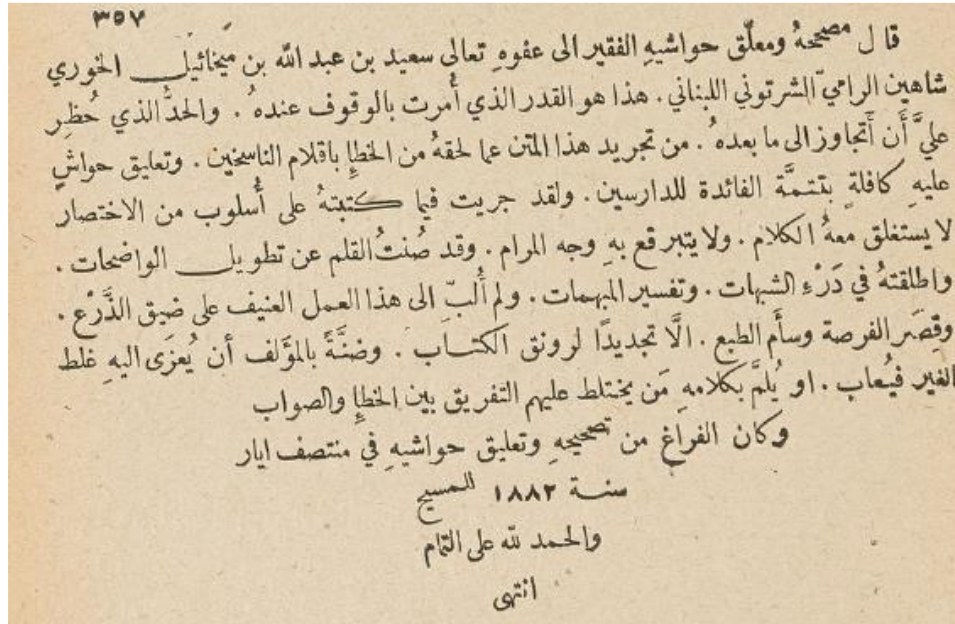 ٣٥٧
قال مصححهُ ومعلّق حواشيهِ الفقير الى عفوهِ تعالى سعيد بن عبد الله بن مَيخائيل الخوري
شاهين الراميّ الشرتوني اللبناني . هذا هو القدر الذي أُمرت بالوقوف عندهُ . والحدُّ الذي حُظِر
عليَّ أَن أَتجاوز الى ما بعدهُ . من تجريد هذا المتن عما لحقهُ من الخطإِ باقلام الناسخين . وتعليق حواشٍ
عليهِ كافلةٍ بتتمَّة الفائدة للدارسين . ولقد جريت فيما كتبتهُ على أُسلوب من الاختصار
لا يستغلق معهُ الكلام . ولا يتبرقع بهِ وجه المرام . وقد صُنتُ القلم عن تطويل الواضحات .
واطلقتهُ في دَرْءِ الشبهات . وتفسير المبهمات . ولم أُلبِّ الى هذا العمل العنيف على ضيق الذَّرْع .
وقِصَر الفرصة وسأَم الطبع . الَّا تجديدًا لرونق الكتاب . وضنَّةً بالمؤَلف أن يُعزَى اليهِ غلط
الغير فيُعاب . او يُلمَّ بكلامهِ مَن يختلط عليهم التفريق بين الخطإِ والصواب
وكان الفراغ من تصحيحهِ وتعليق حواشيهِ في منتصف ايار
سنة ١٨٨٢ للمسيح
والحمد لله على التمام
انتهى